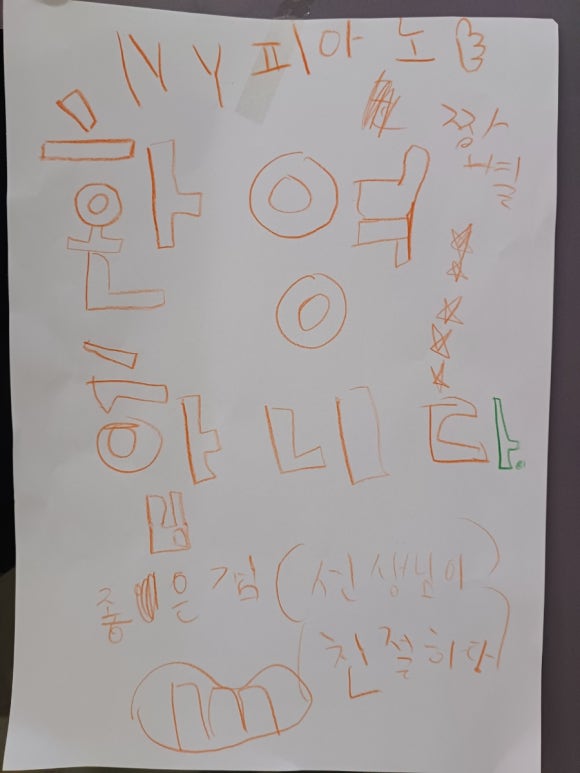 IVY 피아노
짱
환영
합니다
좋은 점 (선생님이
친절하다